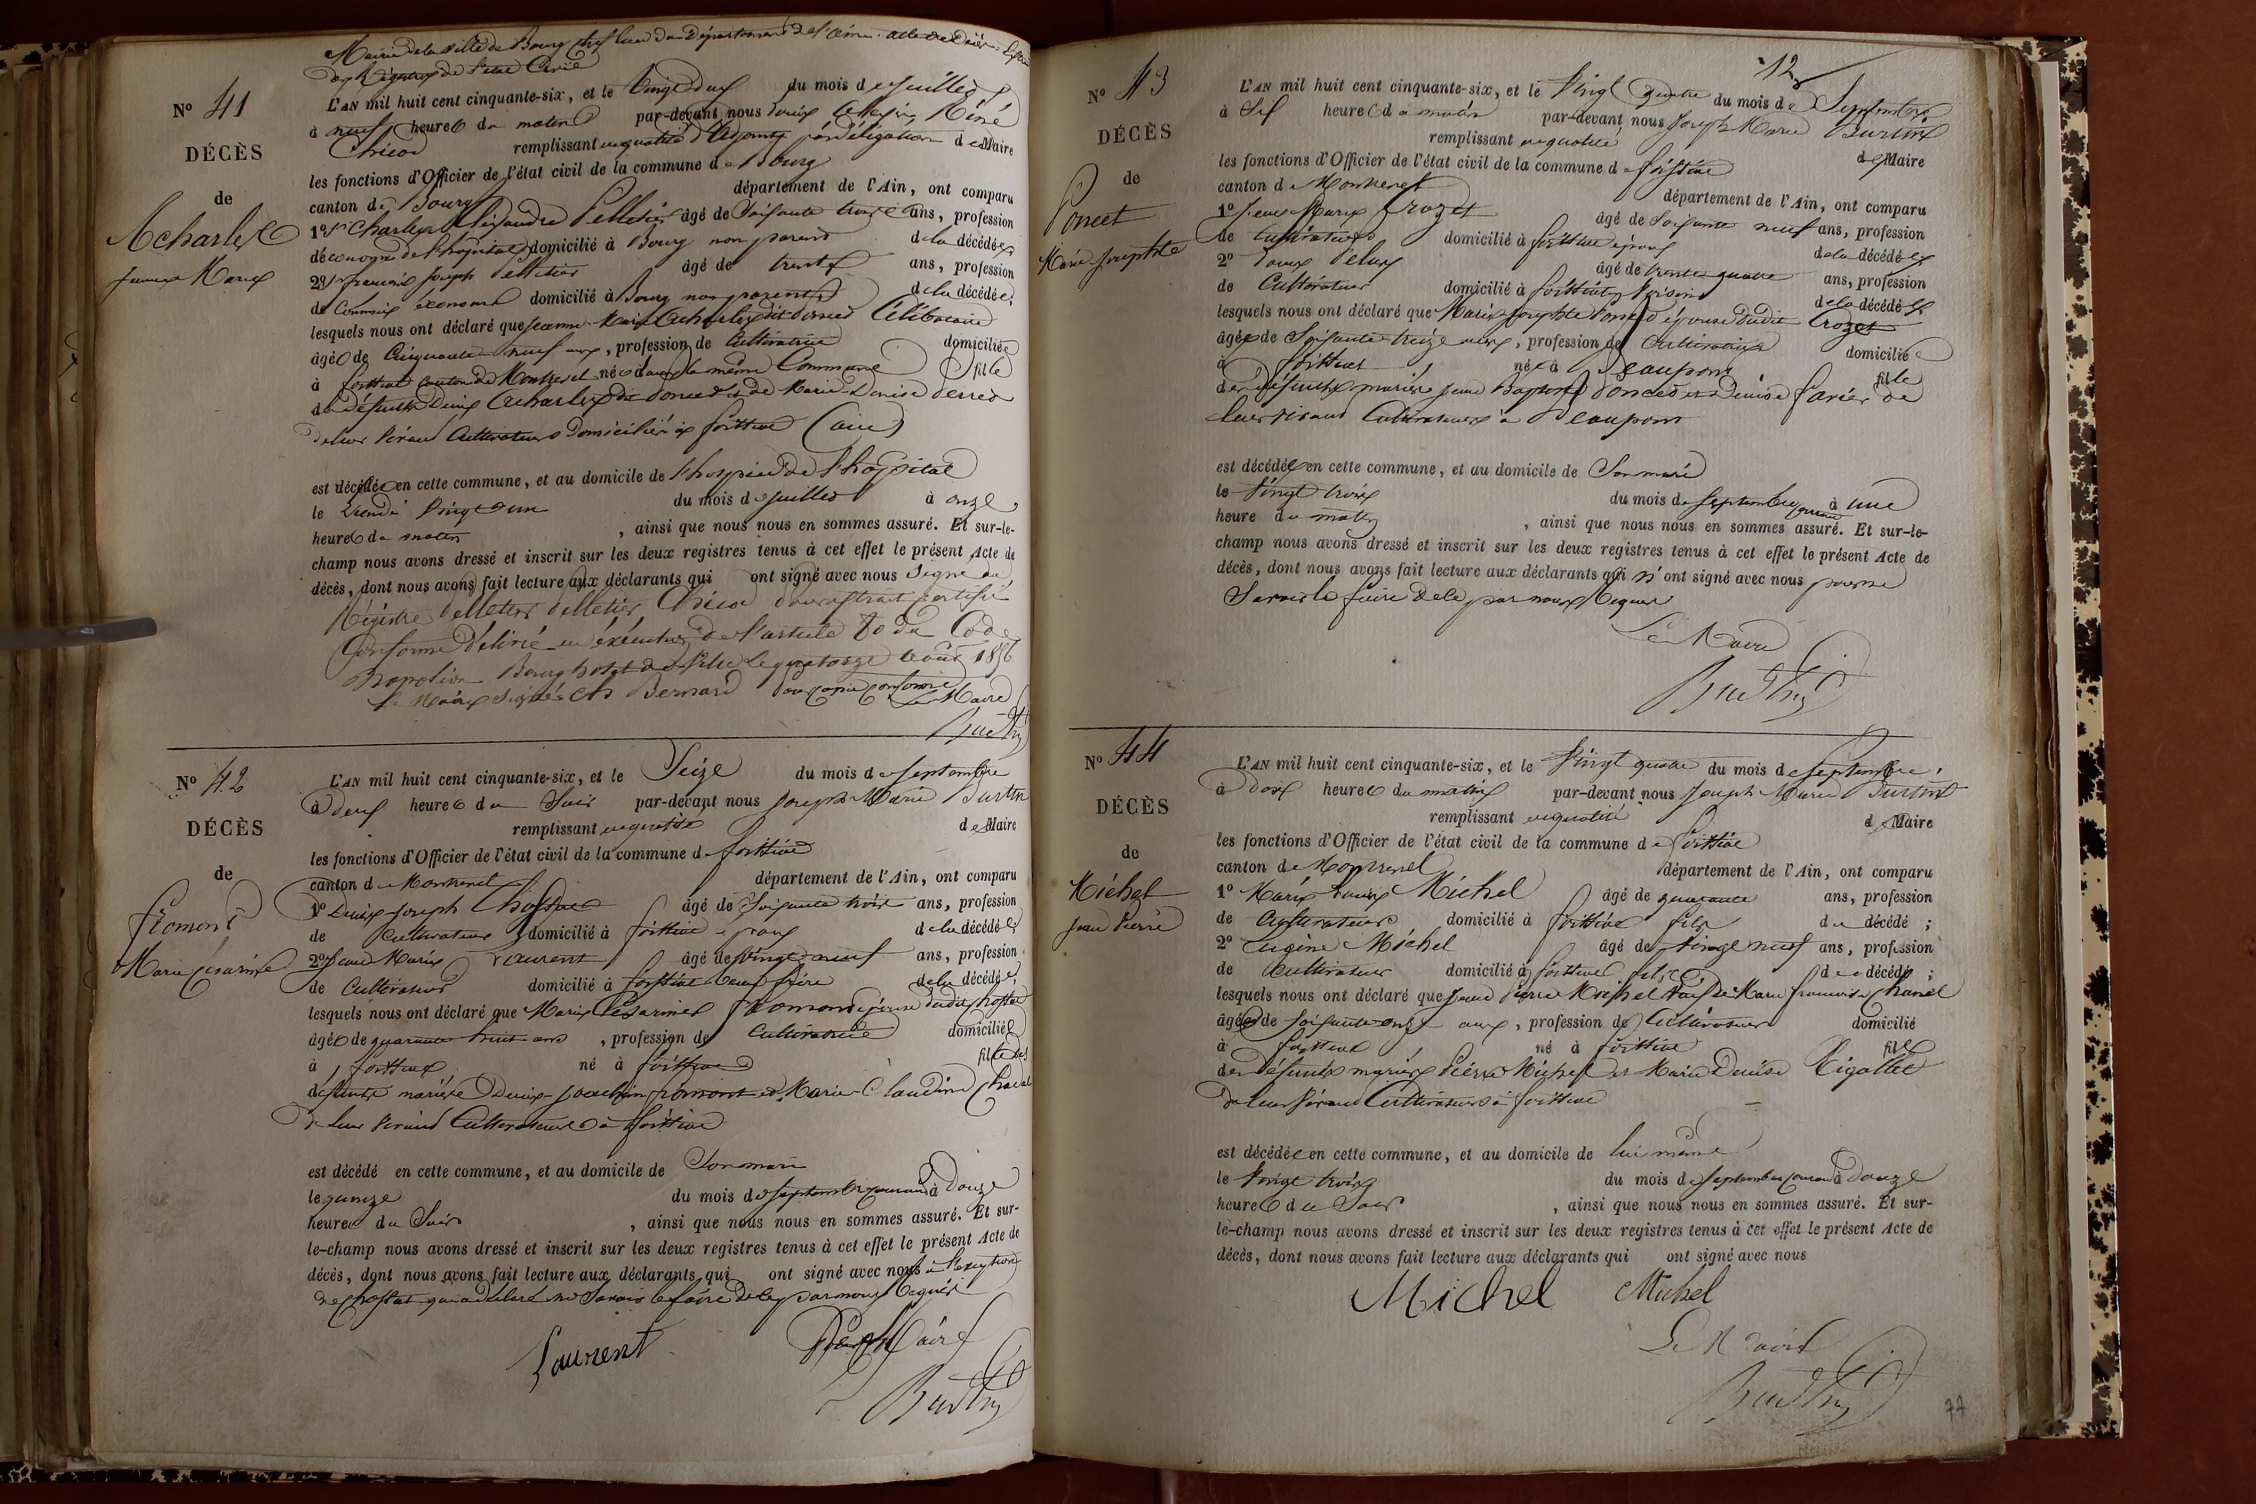 Mairie de la ville de Bourg chef lieu du Département de l'Ain. acte de Décès. Extrait
des Régistres de l'état Civil
N° 41
L'AN mil huit cent cinquante-six, et le Vingt deux du mois de Juillet
à neuf heures du matin par-devant nous Louis René
Chicod remplissant en qualité d'Adjoint par délégation de Maire
DÉCÈS
les fonctions d'Officier de l'état civil de la commune de Bourg
de
canton de Bourg département de l'Ain, ont comparu
Acharles
Jeanne Marie
1° Sr Charles Alexandre Pelletier âgé de Soixante trois ans, profession
de économe de l'hôpital domicilié à Bourg non parent de la décédée
2° Sr françois Joseph Pelletier âgé de trente ans, profession
de Commis économe domicilié à Bourg non parent de la décédée;
lesquels nous ont déclaré que Jeanne Marie Acharles dit Poncet Célibataire
âgée de Cinquante neuf ans, profession de Cultivatrice domiciliée
à foissiat canton de Montrevel née dans la même Commune fille
de défunts Denis Acharles dit Poncet et de Marie Denise Perret
de leur vivant Cultivateurs Domiciliés à foissiat (ain)
est décédée en cette commune, et au domicile de l'hospice de l'hôpital
le Vingt un du mois de Juillet à onze
heures du matin, ainsi que nous nous en sommes assuré. Et sur-le-
champ nous avons dressé et inscrit sur les deux registres tenus à cet effet le présent Acte de
décès, dont nous avons fait lecture aux déclarants qui ont signé avec nous Signé au
Régistre Pelletier Pelletier Chicod Pour extrait certifié
Conforme Délivré en exécution de l'article 80 du Code
Napoléon Bourg hotel de Ville le quatorze aout 1856
le Maire signé Bernard Pour copie conforme
Le Maire
Burtin
N° 42
L'AN mil huit cent cinquante-six, et le Seize du mois de Septembre
à deux heures du Soir par-devant nous Joseph Marie Burtin
remplissant en qualité de Maire
DÉCÈS
les fonctions d'Officier de l'état civil de la commune de foissiat
de
canton de Montrevel département de l'Ain, ont comparu
Fromont
Marie Césarine
1° Denis Joseph Chossat âgé de Soixante trois ans, profession
de Cultivateur domicilié à foissiat époux de la décédée
2° Jean Marie Laurent âgé de Vingt neuf ans, profession
de Cultivateur domicilié à foissiat beau frère de la décédée;
lesquels nous ont déclaré que Marie Césarine Fromont épouse dudit Chossat
âgée de quarante huit ans, profession de Cultivatrice domiciliée
à foissiat né à foissiat fille des
défunts mariés Denis Joachim fromont et Marie Claudine
de leur vivant Cultivateurs à foissiat
est décédé en cette commune, et au domicile de Son mari
le quinze du mois de Septembre courant à Douze
heures du Soir, ainsi que nous nous en sommes assuré. Et sur-
le-champ nous avons dressé et inscrit sur les deux registres tenus à cet effet le présent Acte de
décès, dont nous avons fait lecture aux déclarants qui ont signé avec nous à l'exception
de Chossat qui a déclaré ne Savoir le faire de ce par nous Requis
Laurent
Le Maire
Burtin
12
N° 43
L'AN mil huit cent cinquante-six, et le Vingt quatre du mois de Septembre
à Six heures du matin par-devant nous Joseph Marie Burtin
remplissant en qualité de Maire
DÉCÈS
les fonctions d'Officier de l'état civil de la commune de foissiat
de
canton de Montrevel département de l'Ain, ont comparu
Poncet
Marie Josephte
1° Jean Marie Crozet âgé de Soixante neuf ans, profession
de Cultivateur domicilié à foissiat époux de la décédée
2° Louis âgé de trente quatre ans, profession
de Cultivateur domicilié à foissiat Voisin de la décédée
lesquels nous ont déclaré que Marie Josephte Poncet épouse dudit Crozet
âgée de Soixante treize ans, profession de Cultivatrice domiciliée
à foissiat née à Beaupont fille
des défunts mariés Jean Baptiste Poncet et Denise farier de
leur vivant Cultivateurs à Beaupont
est décédée en cette commune, et au domicile de Son mari
le Vingt trois du mois de Septembre courant à une
heure du matin, ainsi que nous nous en sommes assuré. Et sur-le-
champ nous avons dressé et inscrit sur les deux registres tenus à cet effet le présent Acte de
décès, dont nous avons fait lecture aux déclarants qui n'ont signé avec nous pour ne
Savoir le faire de ce par nous Requis
Le Maire
Burtin
N° 44
L'AN mil huit cent cinquante-six, et le Vingt quatre du mois de Septembre
à Dix heures du matin par-devant nous Joseph Marie Burtin
remplissant en qualité de Maire
DÉCÈS
les fonctions d'Officier de l'état civil de la commune de foissiat
de
canton de Montrevel département de l'Ain, ont comparu
Michel
Jean Pierre
1° Marie Louis Michel âgé de quarante ans, profession
de Cultivateur domicilié à foissiat fils du décédé;
2° Eugène Michel âgé de Vingt neuf ans, profession
de Cultivateur domicilié à foissiat fils du décédé;
lesquels nous ont déclaré que Jean Pierre Michel Veuf de Marie françoise Chanel
âgé de Soixante onze ans, profession de Cultivateur domicilié
à foissiat né à foissiat fils
des défunts mariés Pierre Michel et Marie Denise Rigollet
de leur vivant Cultivateurs à foissiat
est décédé en cette commune, et au domicile de lui même
le Vingt trois du mois de Septembre courant à Douze
heures du Soir, ainsi que nous nous en sommes assuré. Et sur-
le-champ nous avons dressé et inscrit sur les deux registres tenus à cet effet le présent Acte de
décès, dont nous avons fait lecture aux déclarants qui ont signé avec nous
Michel Michel
Le Maire
Burtin
77